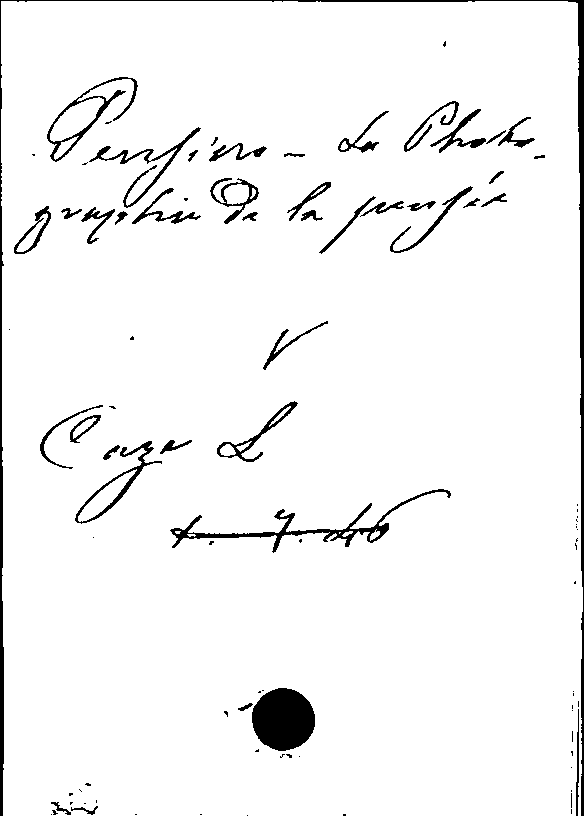 Pensiero – La Photo-
graphie de la pensée
V
Caze L